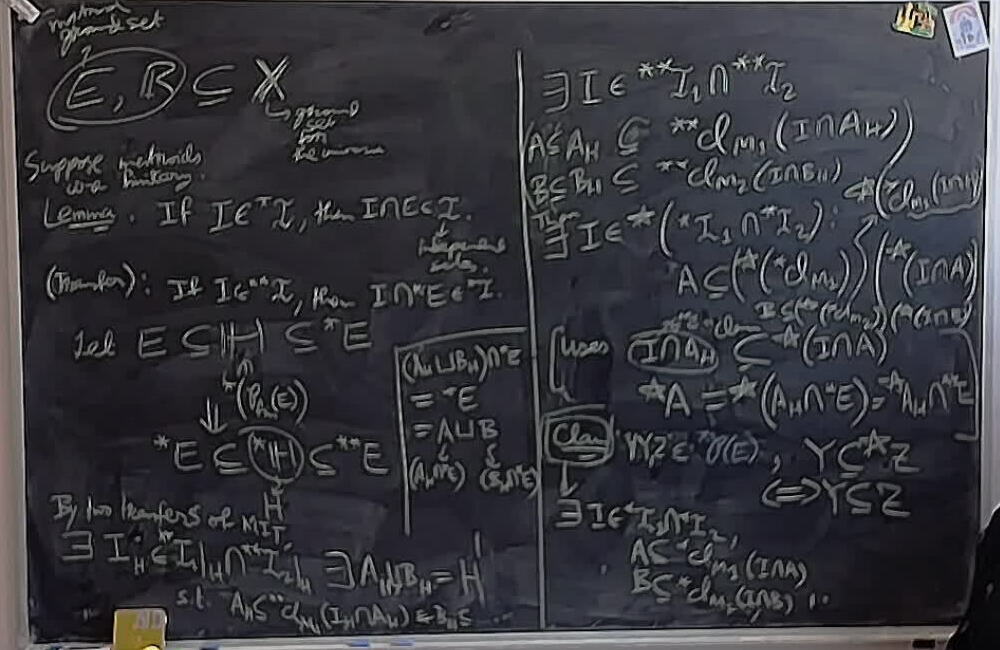 matroid
ground set
E, ℝ ⊆ X
↳ ground
set
for
the universe
Suppose matroids
are finitary.
Lemma. If I ∈ *ℐ, then I∩E ∈ ℐ.
independent
sets.
(Transfer): If I ∈ **ℐ, then I∩*E ∈ *ℐ.
Let E ⊆ H ⊆ *E
*(P_fin(E))
⇓
*E ⊆ *H ⊆ **E
H
By two transfers of MIT
∃ I_H ∈ **ℐ_1|_H ∩ **ℐ_2|_H ∃ A_H ⊔ B_H = H
s.t. A_H ⊆ **cl_{M_1}(I_H∩A_H) & B_H ⊆ ...
(A_H ⊔ B_H)∩*E
= *E
= A ⊔ B
(A_H∩*E) (B_H∩*E)
∃ I ∈ **ℐ_1 ∩ **ℐ_2
A ⊆ A_H ⊆ **cl_{M_1}(I∩A_H)
B ⊆ B_H ⊆ **cl_{M_2}(I∩B_H)
*(*cl_{M_1}(I∩A))
Then
∃ I ∈ *(*ℐ_1 ∩ *ℐ_2):
A ⊆ (*(*cl_{M_1}))(*(I∩A)
B ⊆ (*(*cl_{M_2}))(*(I∩B)
uses I∩A_H ⊆ *(I∩A)
*A = *(A_H∩*E) = *A_H∩**E
Claim ∀Y,Z ∈ *P(E), Y ⊆ *Z
⇔ Y ⊆ Z
∃ I ∈ *ℐ_1 ∩ *ℐ_2,
A ⊆ *cl_{M_1}(I∩A)
B ⊆ *cl_{M_2}(I∩B) ..